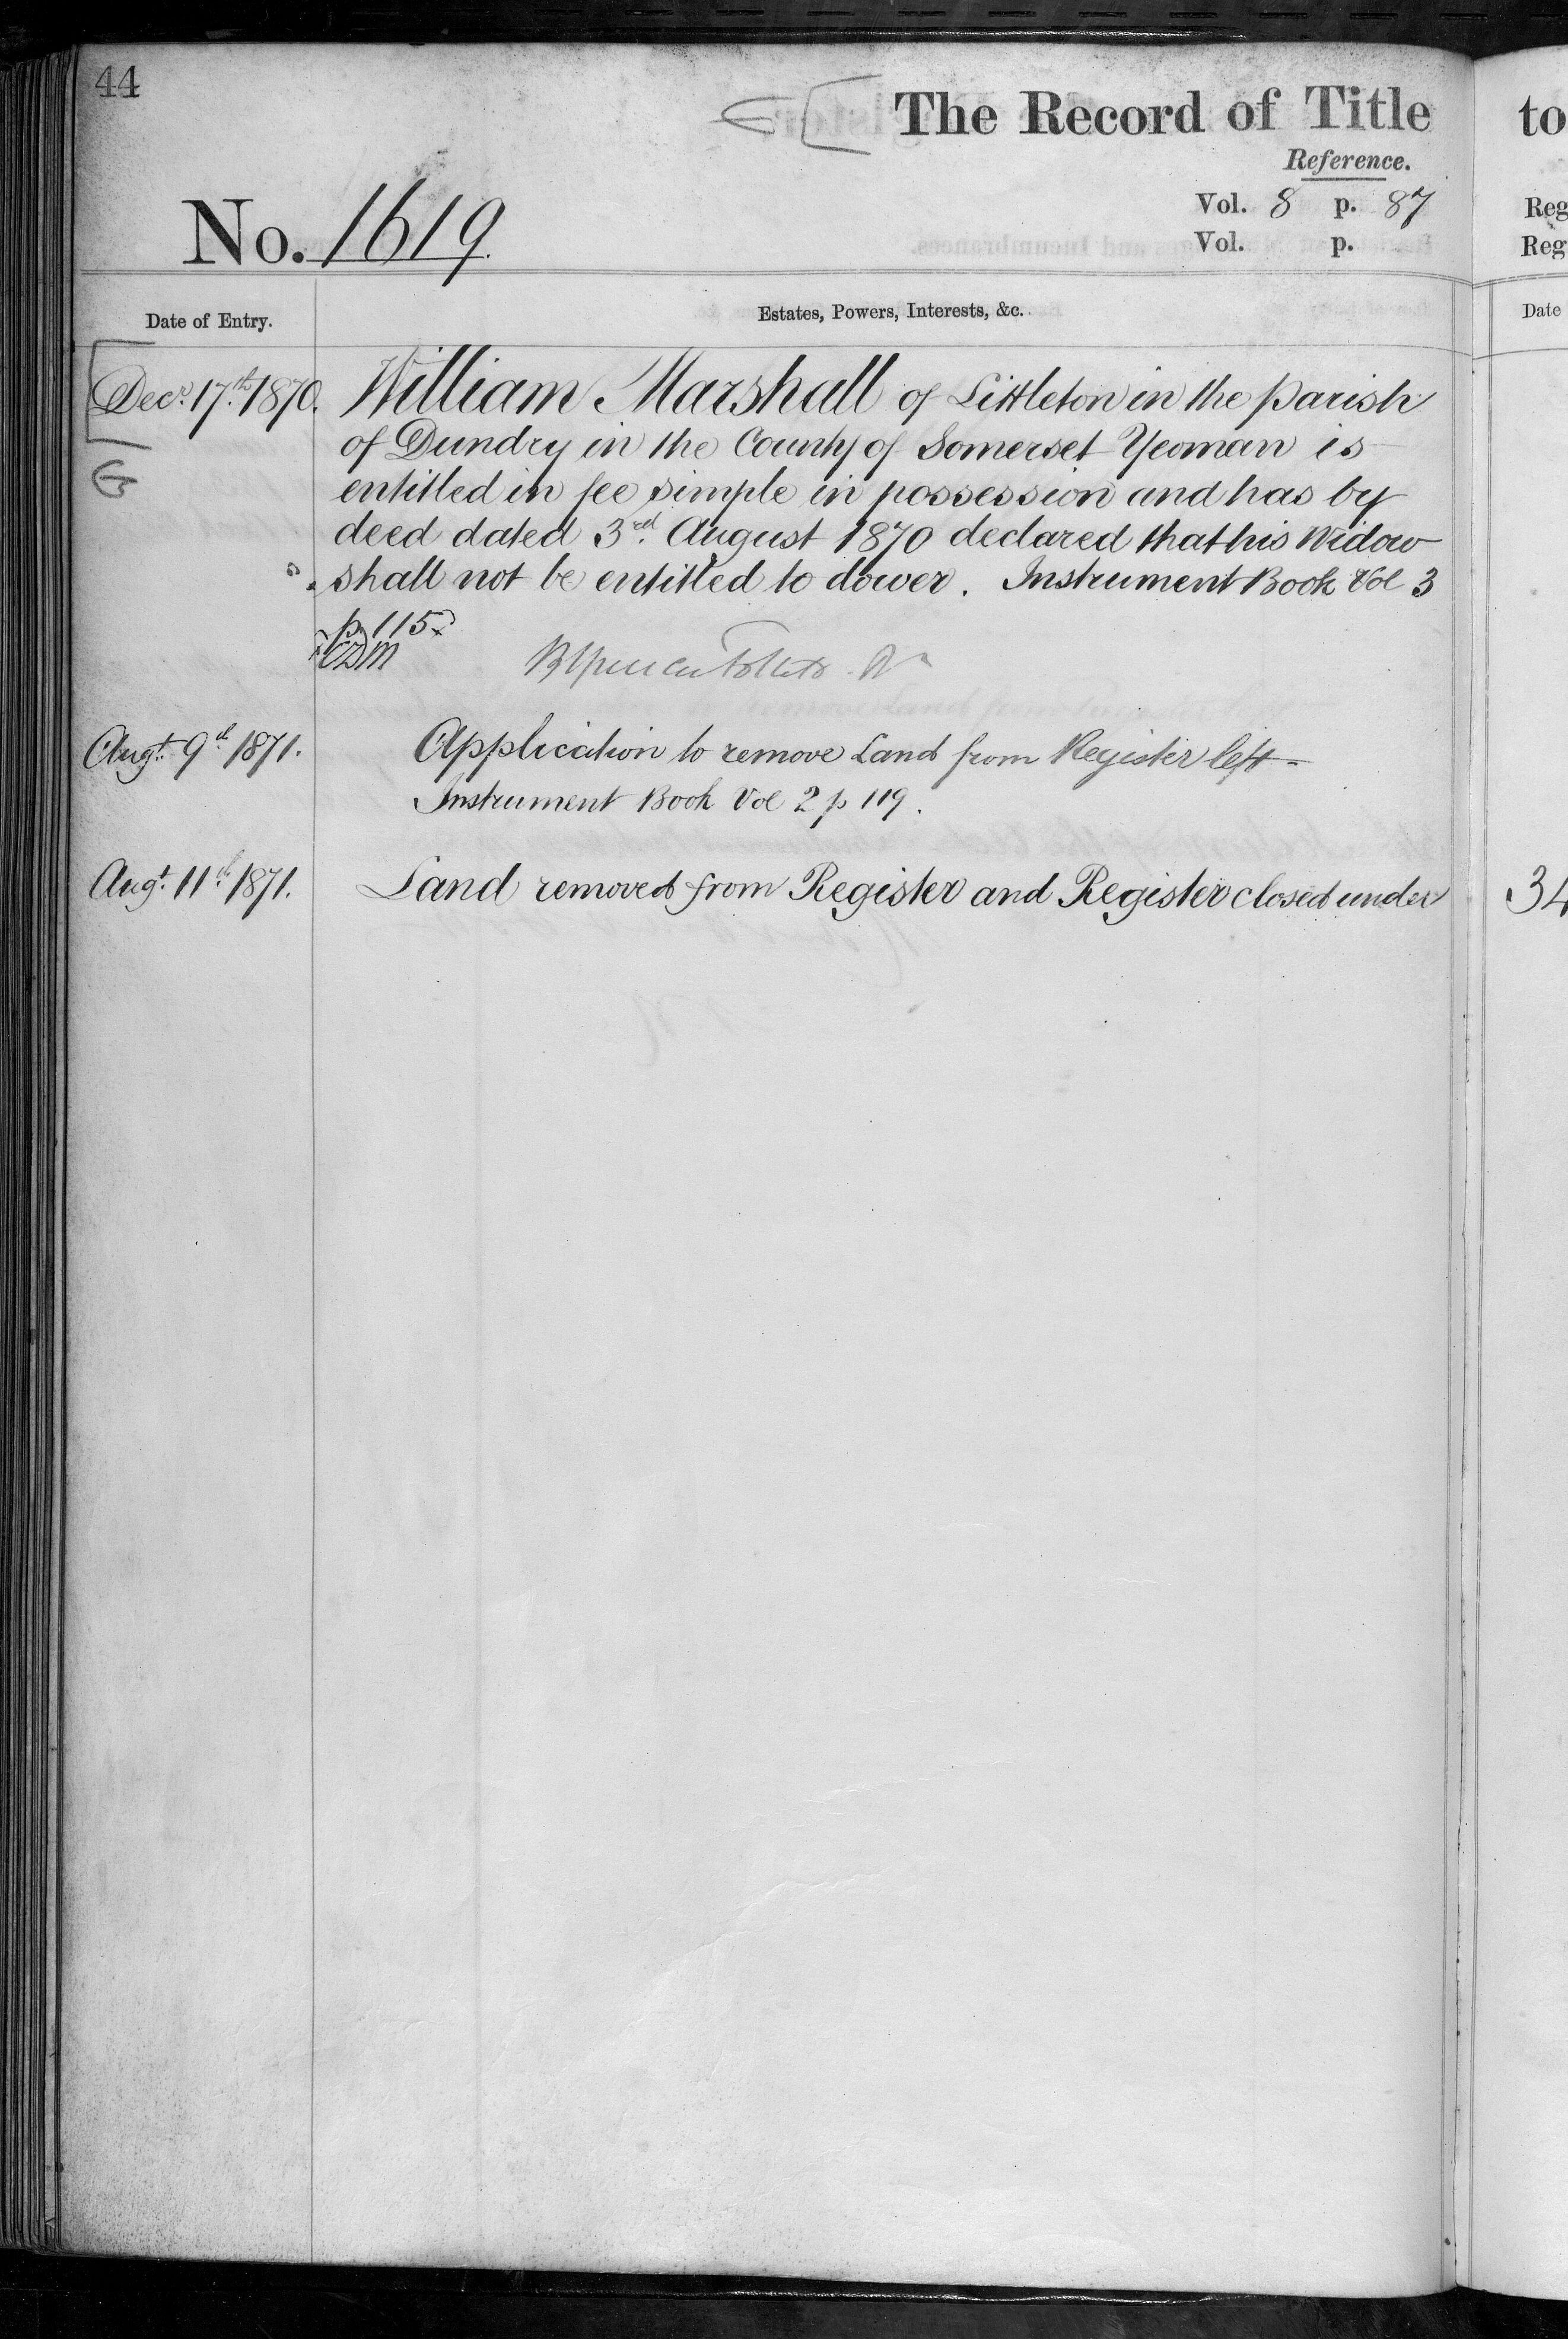 44
The Record of Title
Reference.
Vol. 8 p. 87
Vol. p.
No. 1619.
Date of Entry.
Estates, Powers, Interests, &c.
Decr. 17th. 1870. William Marshall of Littleton in the parish
of Dundry in the County of Somerset Yeoman is
entitled in fee simple in possession and has by
deed dated 3rd. August 1870 declared that his Widow
shall not be entitled to dower. Instrument Book Vol 3
p. 115.
Augt. 9th. 1871. Application to remove Land from Register left -
Instrument Book Vol 2 p 119.
Augt. 11th. 1871. Land removed from Register and Register closed under
to
Reg
Reg
Date
34